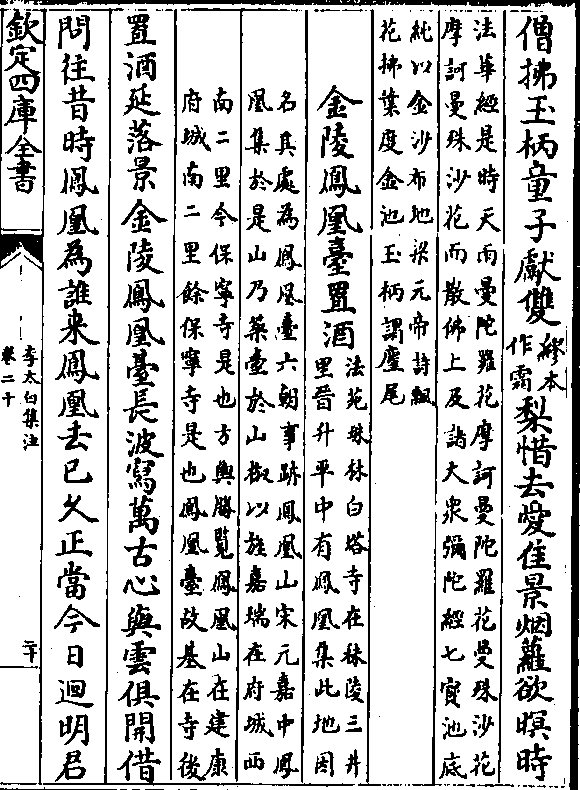 僧拂玉柄童子獻雙繆本作霜梨惜去愛佳景烟蘿欲暝時
法華經是時天雨曼陀羅花摩訶曼陀羅花曼殊沙花
摩訶曼殊沙花而散佛上及諸大衆彌陀經七寳池底
純以金沙布地梁元帝詩飄
花拂葉度金池玉柄謂麈尾
金陵鳳凰臺置酒
法苑珠林白塔寺在秣陵三井
里晉升平中有鳳凰集此地因
名其處為鳳凰臺六朝事跡鳳凰山宋元嘉中鳳
凰集於是山乃築臺於山椒以旌嘉瑞在府城西
南二里今保寧寺是也方輿勝覽鳳凰山在建康
府城南二里餘保寧寺是也鳳凰臺故基在寺後
置酒延落景金陵鳳凰臺長波寫萬古心與雲俱開借
問往昔時鳳凰為誰来鳳凰去已久正當今日迴明君
欽定四庫全書
李太白集注
卷二十